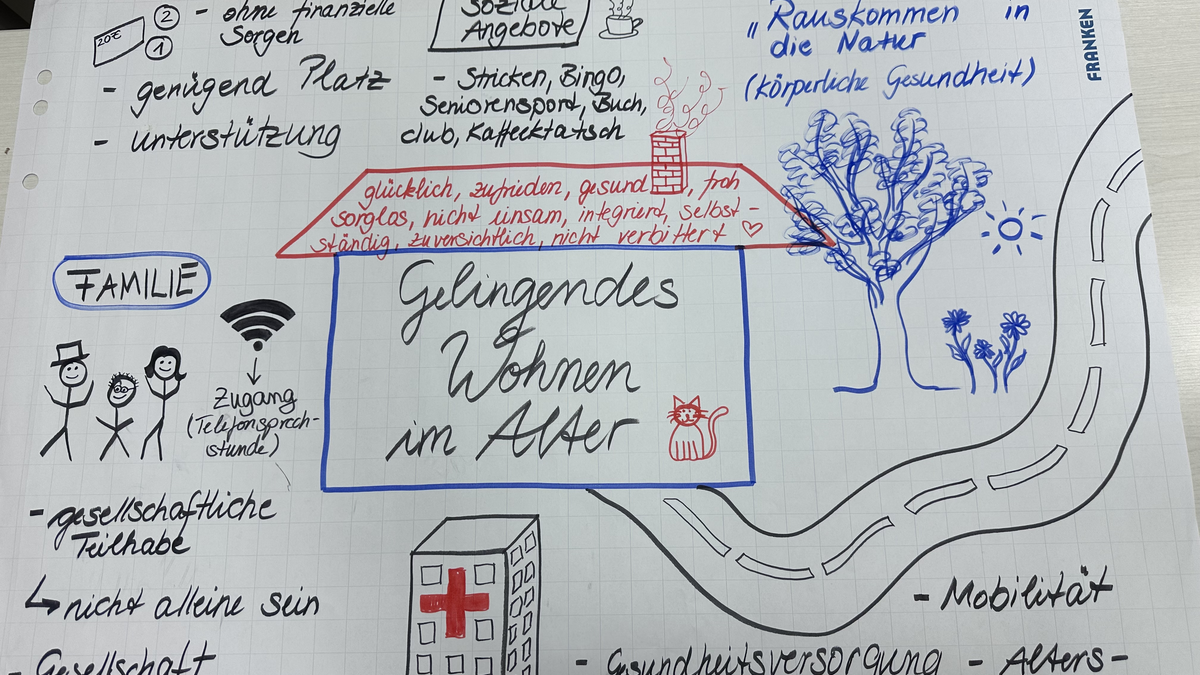 20€
2
1
- ohne finanzielle
Sorgen
- genügend Platz
- unterstützung
Soziale
Angebote
- Stricken, Bingo,
Seniorensport, Buch,
club, Kaffeeklatsch
"Rauskommen in
die Natur
(körperliche Gesundheit)
FRANKEN
glücklich, zufrieden, gesund, froh
sorglos, nicht einsam, integriert, selbst-
ständig, zuversichtlich, nicht verbittert ♡
Gelingendes
Wohnen
im Alter
FAMILIE
Zugang
(Telefonsprech-
stunde)
- gesellschaftliche
Teilhabe
↳ nicht alleine sein
- Gesellschaft
- Mobilität
- Gesundheitsversorgung - Alters-